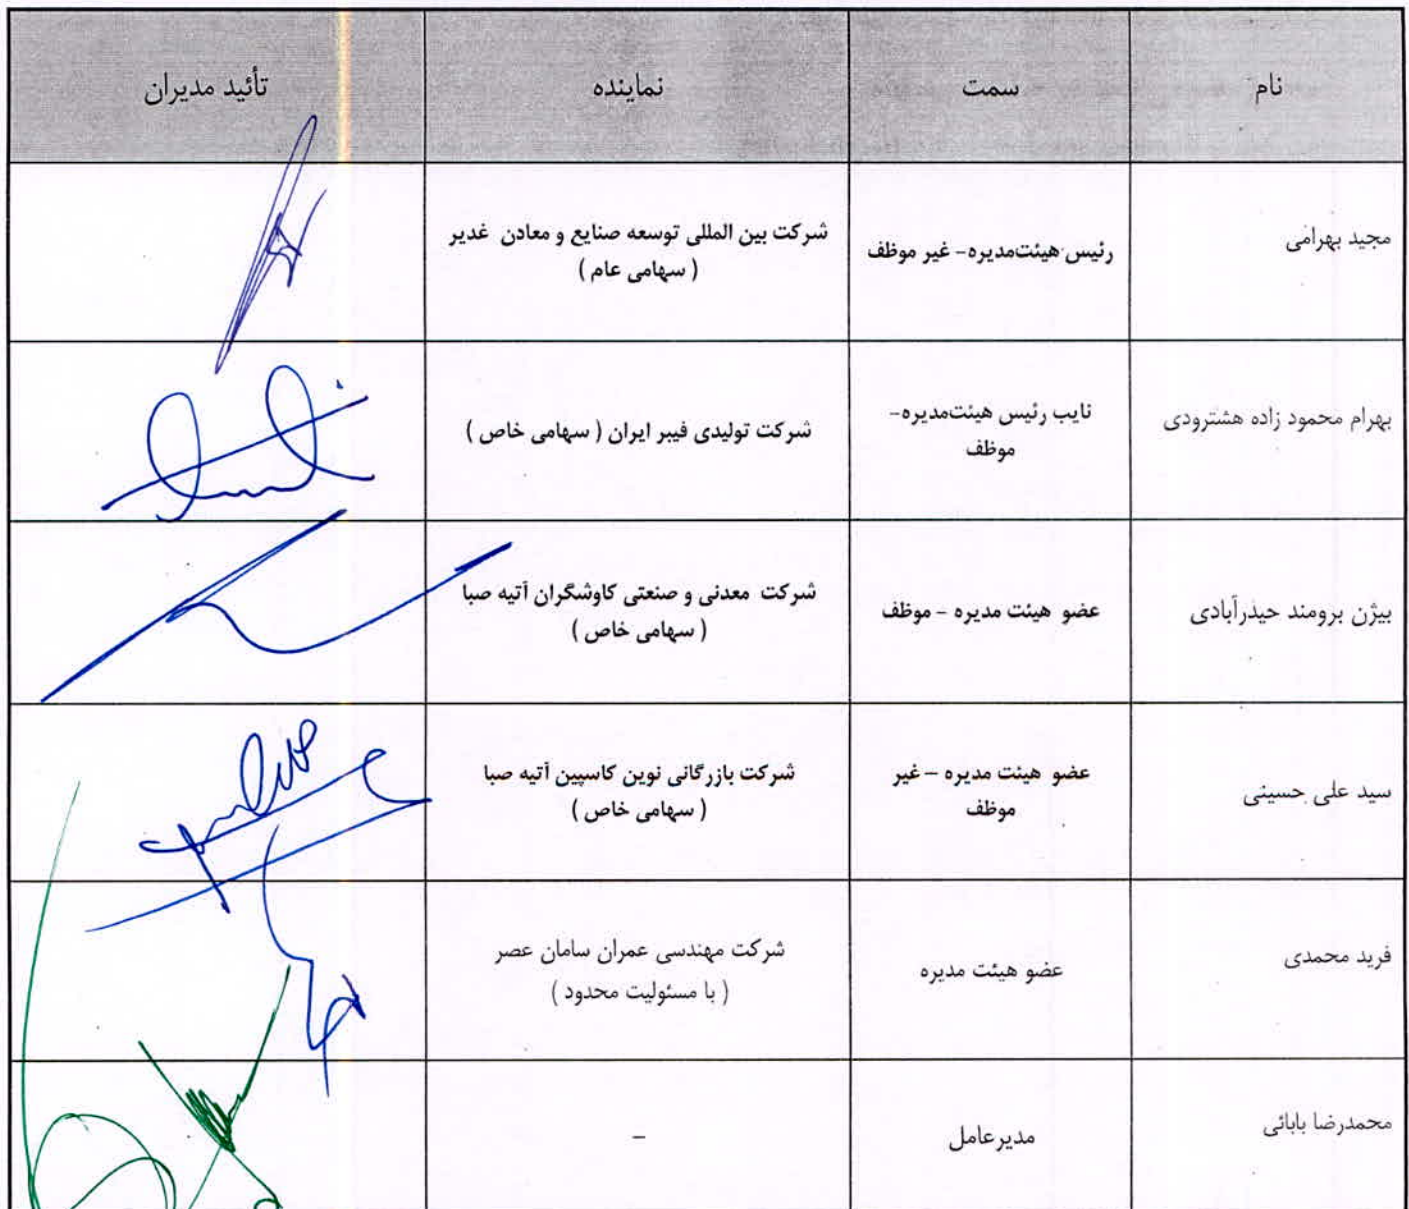 نام سمت نماینده تأئید مدیران
مجید بهرامی رئیس هیئت‌مدیره- غیر موظف شرکت بین المللی توسعه صنایع و معادن غدیر
( سهامی عام )
بهرام محمود زاده هشترودی نایب رئیس هیئت‌مدیره- شرکت تولیدی فیبر ایران ( سهامی خاص )
موظف
بیژن برومند حیدرآبادی عضو هیئت مدیره - موظف شرکت معدنی و صنعتی کاوشگران آتیه صبا
( سهامی خاص )
سید علی حسینی عضو هیئت مدیره - غیر شرکت بازرگانی نوین کاسپین آتیه صبا
موظف ( سهامی خاص )
فرید محمدی عضو هیئت مدیره شرکت مهندسی عمران سامان عصر
( با مسئولیت محدود )
محمدرضا بابائی مدیرعامل -